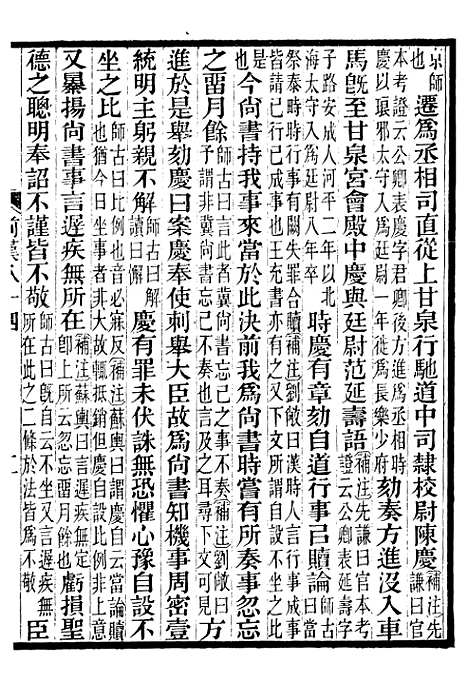 京師也遷爲丞相司直從上甘泉行馳道中司隸校尉陳慶補注先謙曰官
本考證云公卿表慶字君卿後方進爲京兆尹
慶以琅邪太守爲廷尉一年徙爲長樂少府劾奏方進沒入車
馬旣至甘泉宮會殿中慶與廷尉范延壽語補注先謙曰官本考證云公卿表延壽
子路安成人河平二年以北海太守入爲廷尉八年卒時慶有章劾自道行事㠯贖論師古
祭泰畤時行事有闕失罪合贖補注劉敞曰漢時人言行事成事
皆謂已行已成事也王充書亦有之又下文所謂不坐之此
是也今尙書持我事來當於此決前我爲尙書時嘗有所奏事忽忘
之留月餘師古曰言此者冀尙書忘己之事不奏補注劉敞曰
予謂非冀尙書忘己不奏也言及之耳尋下文可見方
進於是舉劾慶曰案慶奉使刺舉大臣故爲尙書知機事周密壹
統明主躬親不解師古曰解讀曰懈慶有罪未伏誅無恐懼心豫自設不
坐之比師古曰比例也音必寐反補注蘇輿曰謂慶自云當論贖
也猶今日坐事者故輒抵銷但慶自設比例非上意
又暴揚尙書事言遲疾無所在補注蘇輿曰遲疾無定
卽上所云忽忘留月餘也虧損聖
德之聰明奉詔不謹皆不敬師古曰旣自云不坐又言遲疾無
所在此之二條於法皆爲不敬臣
前漢八十四